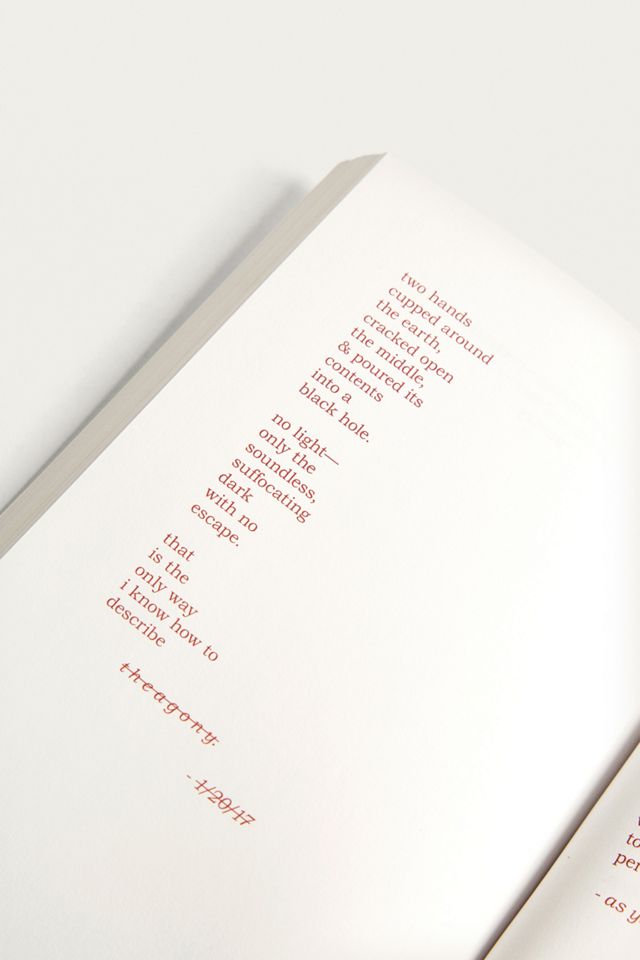 two hands
cupped around
the earth,
cracked open
the middle,
& poured its
contents
into a
black hole.
no light—
only the
soundless,
suffocating
dark
with no
escape.
that
is the
only way
i know how to
describe
t h e a g o n y.
- 1/20/17
to
per
- as y